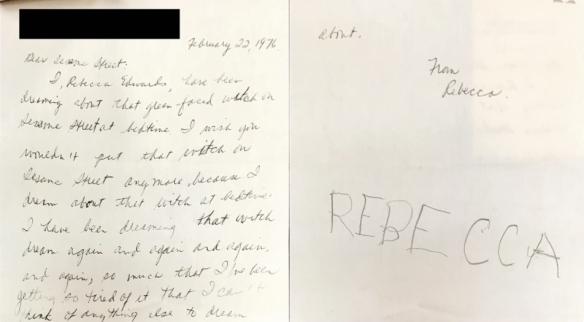 February 22, 1976
Dear Sesame Street:
I, Rebecca Edwards, have been
dreaming about that green-faced witch on
Sesame Street at bedtime. I wish you
wouldn't put that witch on
Sesame Street anymore, because I
dream about that witch at bedtime.
I have been dreaming that witch
dream again and again and again,
and again, so much that I've been
getting so tired of it that I can't
think of anything else to dream
about.
From
Rebecca.
REBECCA